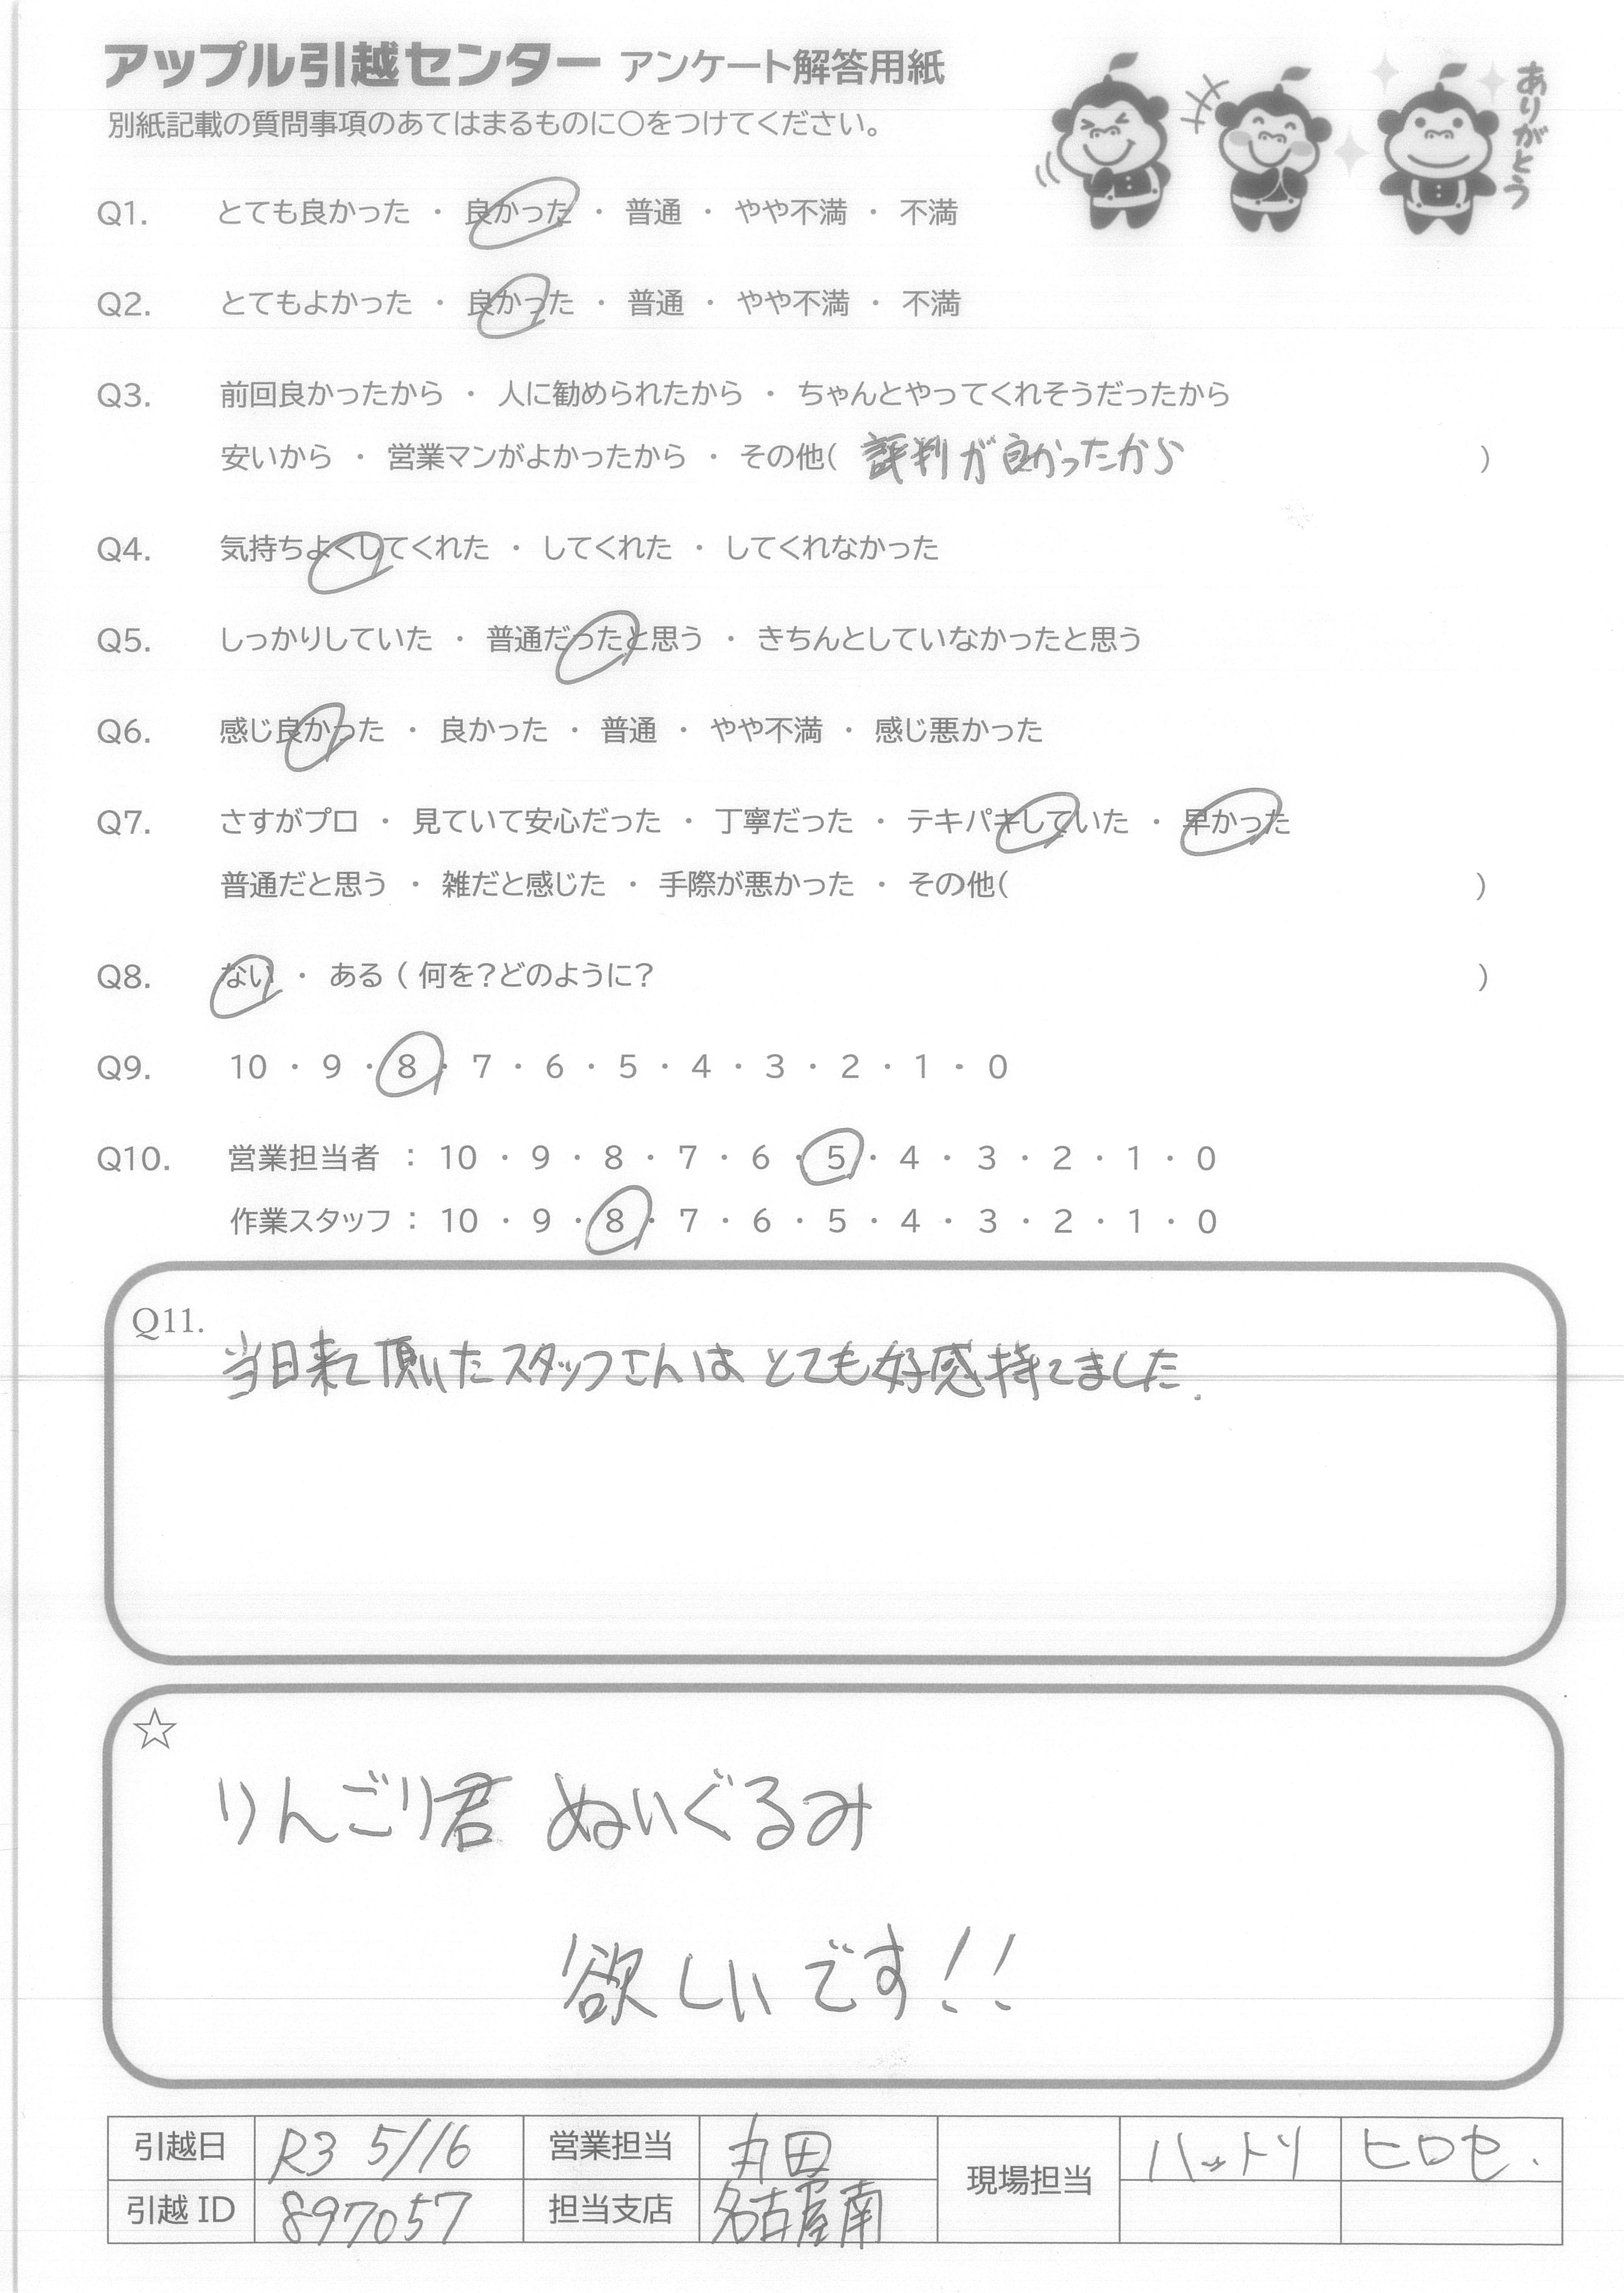 アップル引越センター アンケート解答用紙
ありがとう
別紙記載の質問事項のあてはまるものに〇をつけてください。
Q1. とても良かった ・ 良かった ・ 普通 ・ やや不満 ・ 不満
Q2. とてもよかった ・ 良かった ・ 普通 ・ やや不満 ・ 不満
Q3. 前回良かったから ・ 人に勧められたから ・ ちゃんとやってくれそうだったから
安いから ・ 営業マンがよかったから ・ その他( 評判が良かったから )
Q4. 気持ちよくしてくれた ・ してくれた ・ してくれなかった
Q5. しっかりしていた ・ 普通だったと思う ・ きちんとしていなかったと思う
Q6. 感じ良かった ・ 良かった ・ 普通 ・ やや不満 ・ 感じ悪かった
Q7. さすがプロ ・ 見ていて安心だった ・ 丁寧だった ・ テキパキしていた ・ 早かった
普通だと思う ・ 雑だと感じた ・ 手際が悪かった ・ その他( )
Q8. ない ・ ある ( 何を?どのように? )
Q9. 10 ・ 9 ・ 8 ・ 7 ・ 6 ・ 5 ・ 4 ・ 3 ・ 2 ・ 1 ・ 0
Q10. 営業担当者 : 10 ・ 9 ・ 8 ・ 7 ・ 6 ・ 5 ・ 4 ・ 3 ・ 2 ・ 1 ・ 0
作業スタッフ : 10 ・ 9 ・ 8 ・ 7 ・ 6 ・ 5 ・ 4 ・ 3 ・ 2 ・ 1 ・ 0
Q11.
当日来て頂いたスタッフさんは とても好感持てました.
☆
りんごり君 ぬいぐるみ
欲しいです!!
引越日 R3 5/16 営業担当 丹田 現場担当 ハットリ ヒロセ.
引越 ID 897057 担当支店 名古屋南